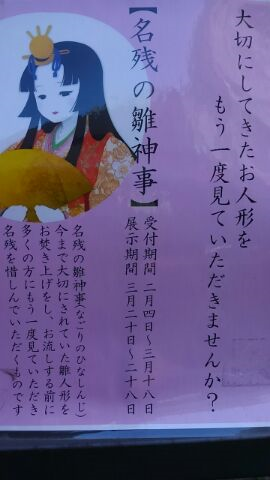 大切にしてきたお人形を
もう一度見ていただきませんか?
【名残の雛神事】
受付期間 二月四日〜三月十八日
展示期間 三月二十日〜二十八日
名残の雛神事(なごりのひなしんじ)
今まで大切にされていた雛人形を
お焚き上げをし、お流しする前に
多くの方にもう一度見ていただき
名残を惜しんでいただくものです